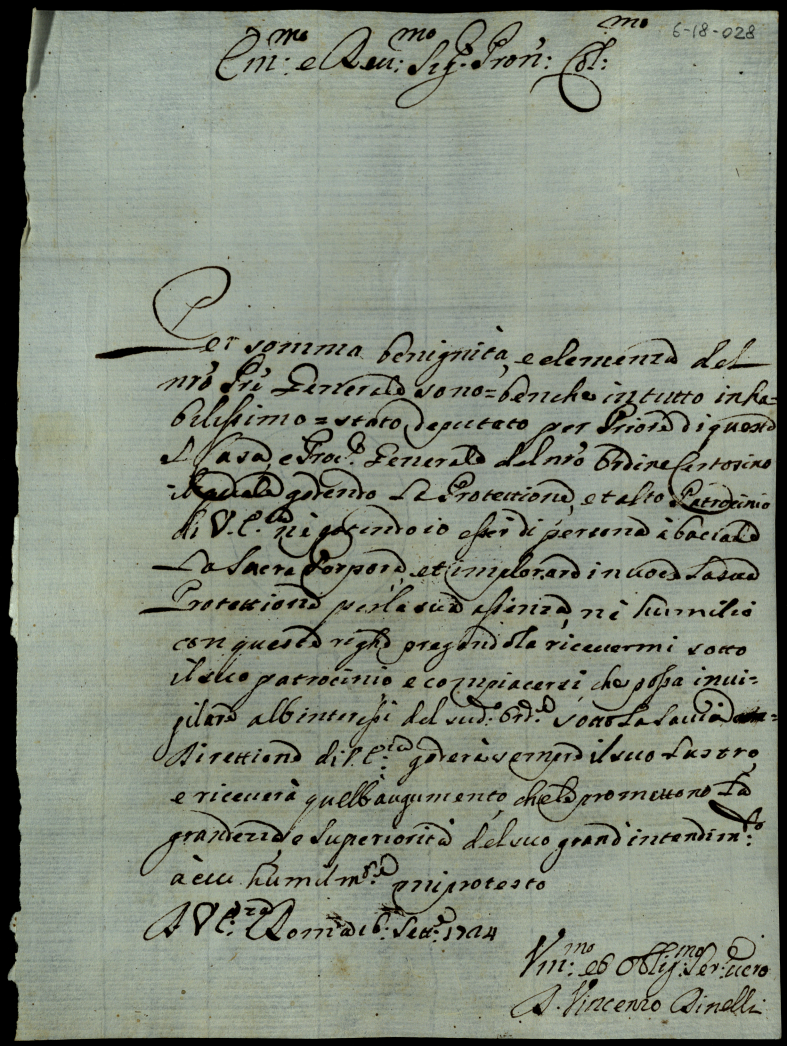 6-18-028
Em:mo e Reu:mo Sig. Pron: Col:mo
Per somma benignità, e clemenza del
nrõ Prẽ Generale sono = benche in tutto inha-
bilissimo = stato deputato per Priore di questa
Casa, e Proc.re Generale del nrõ Ordine Certosino
il quale godendo la Protettione, et alto Patrocinio
di V.E. nè potendo io esser di persona à baciarle
La Sacra Porpora, et implorare in voce la sua
Protettione per la sua assenza, mi humilio
con questa riga pregandola ricevermi sotto
il suo patrocinio e compiacersi, che possa invi-
gilare alli interessi del sud: Ord:e sotto la savia
Direttione di V.E. goderà sempre il suo lustro,
e riceverà quell'augumento, che le promettono la
grandezza, e superiorità del suo grand'intendim:to
à cui humilm:te mi protesto
D V.E. Roma 16: Sett:e 1724
Vm:mo ed Oblig:mo Ser: vero
D. Vincenzo Binelli